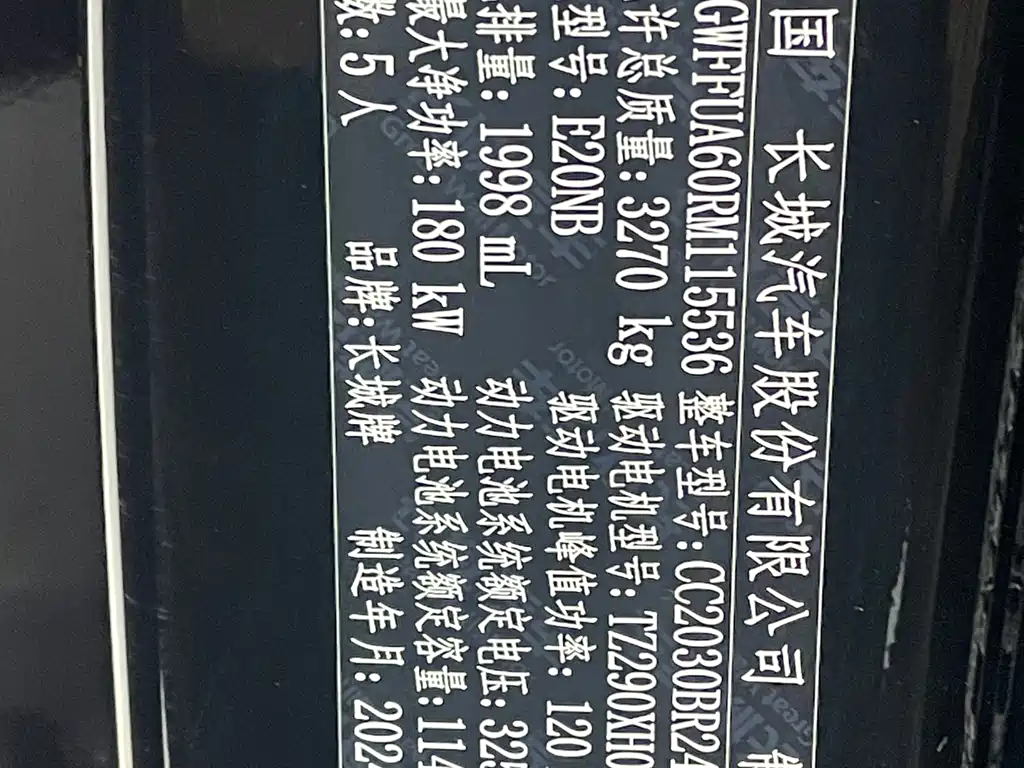 国 长城汽车股份有限公司 制
GWFFUA60RM115536 整车型号:CC2030BR24
许总质量: 3270 kg 驱动电机型号: TZ290XH0
型号: E20NB 驱动电机峰值功率: 120
排量: 1998 mL 动力电池系统额定电压: 325
最大净功率: 180 kW 动力电池系统额定容量: 114
数: 5 人 品牌:长城牌 制造年月: 202